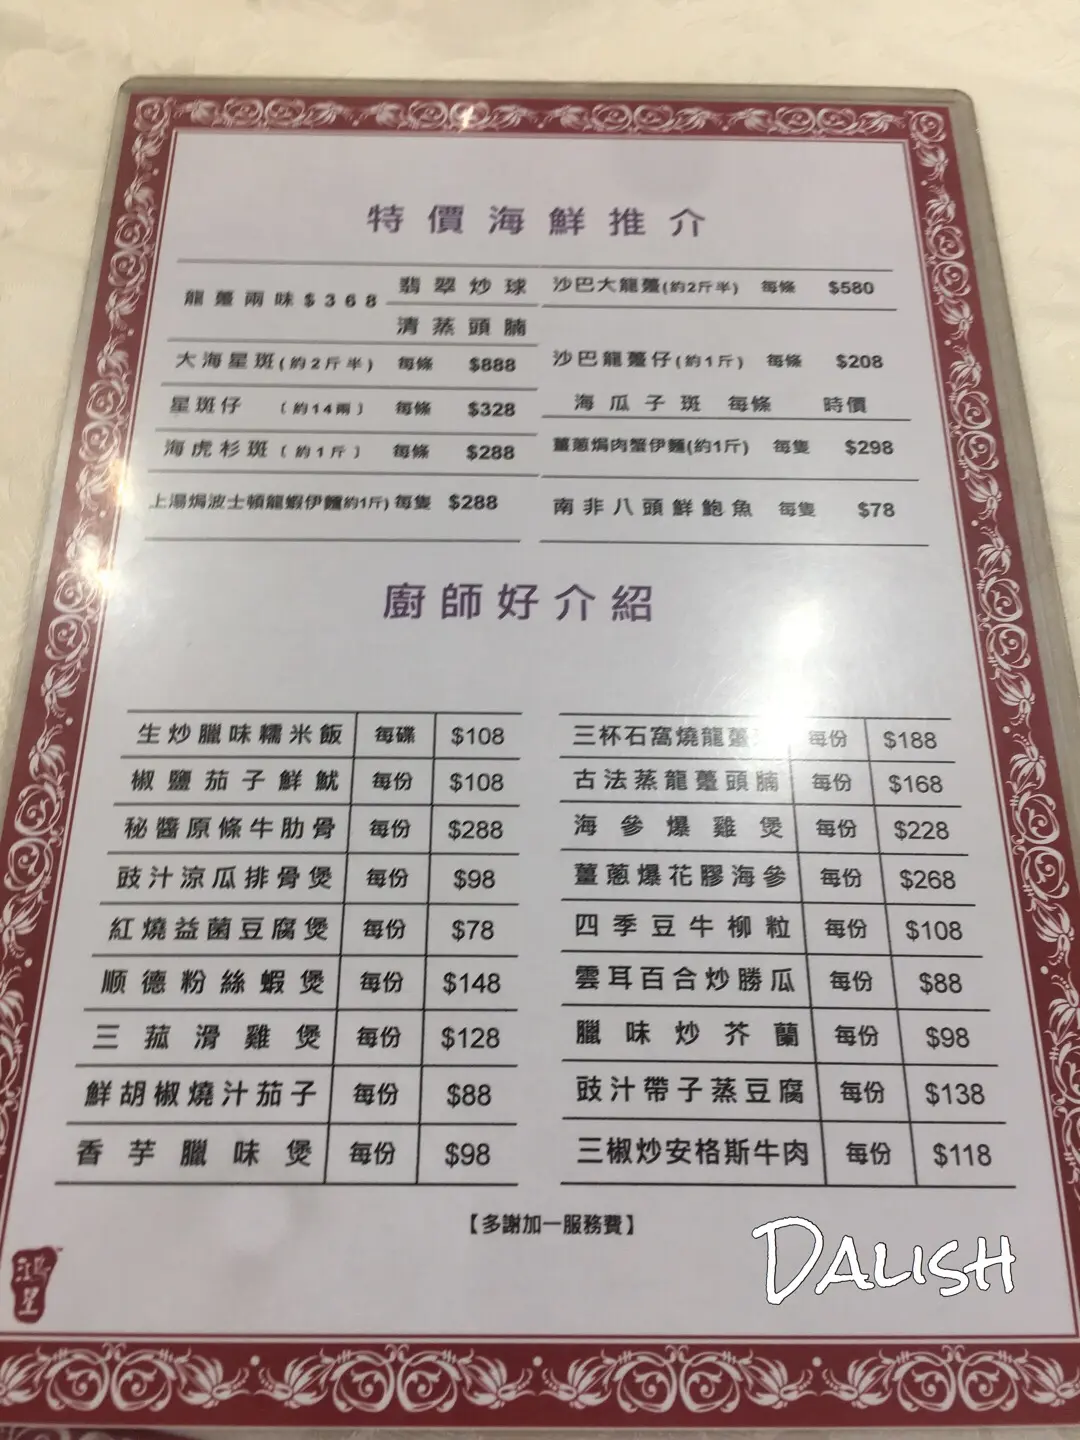 特價海鮮推介
龍躉兩味$368 翡翠炒球
清蒸頭腩
沙巴大龍躉(約2斤半) 每條 $580
大海星斑(約2斤半) 每條 $888
沙巴龍躉仔(約1斤) 每條 $208
星斑仔 (約14兩) 每條 $328
海瓜子斑 每條 時價
海虎杉斑(約1斤) 每條 $288
薑蔥焗肉蟹伊麵(約1斤) 每隻 $298
上湯焗波士頓龍蝦伊麵約1斤) 每隻 $288
南非八頭鮮鮑魚 每隻 $78
廚師好介紹
生炒臘味糯米飯 每碟 $108
三杯石窩燒龍躉 每份 $188
椒鹽茄子鮮魷 每份 $108
古法蒸龍躉頭腩 每份 $168
秘醬原條牛肋骨 每份 $288
海參爆雞煲 每份 $228
豉汁涼瓜排骨煲 每份 $98
薑蔥爆花膠海參 每份 $268
紅燒益菌豆腐煲 每份 $78
四季豆牛柳粒 每份 $108
顺德粉絲蝦煲 每份 $148
雲耳百合炒勝瓜 每份 $88
三菰滑雞煲 每份 $128
臘味炒芥蘭 每份 $98
鮮胡椒燒汁茄子 每份 $88
豉汁帶子蒸豆腐 每份 $138
香芋臘味煲 每份 $98
三椒炒安格斯牛肉 每份 $118
【多謝加一服務費】
鴻星
DALISH